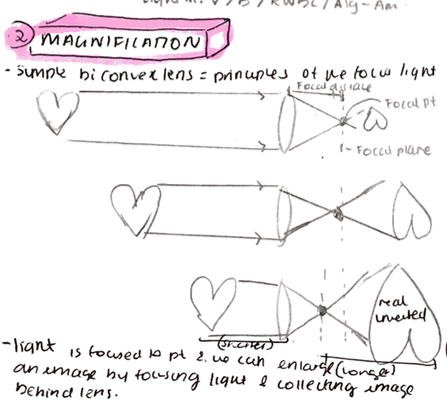 2 MAGNIFICATION
- Simple biconvex lens = principles of we focus light
Focal distance
Focal pt
Focal plane
real
inverted
(shorter)
(longer)
- light is focused to pt & we can enlarge
an image by focusing light & collecting image
behind lens.